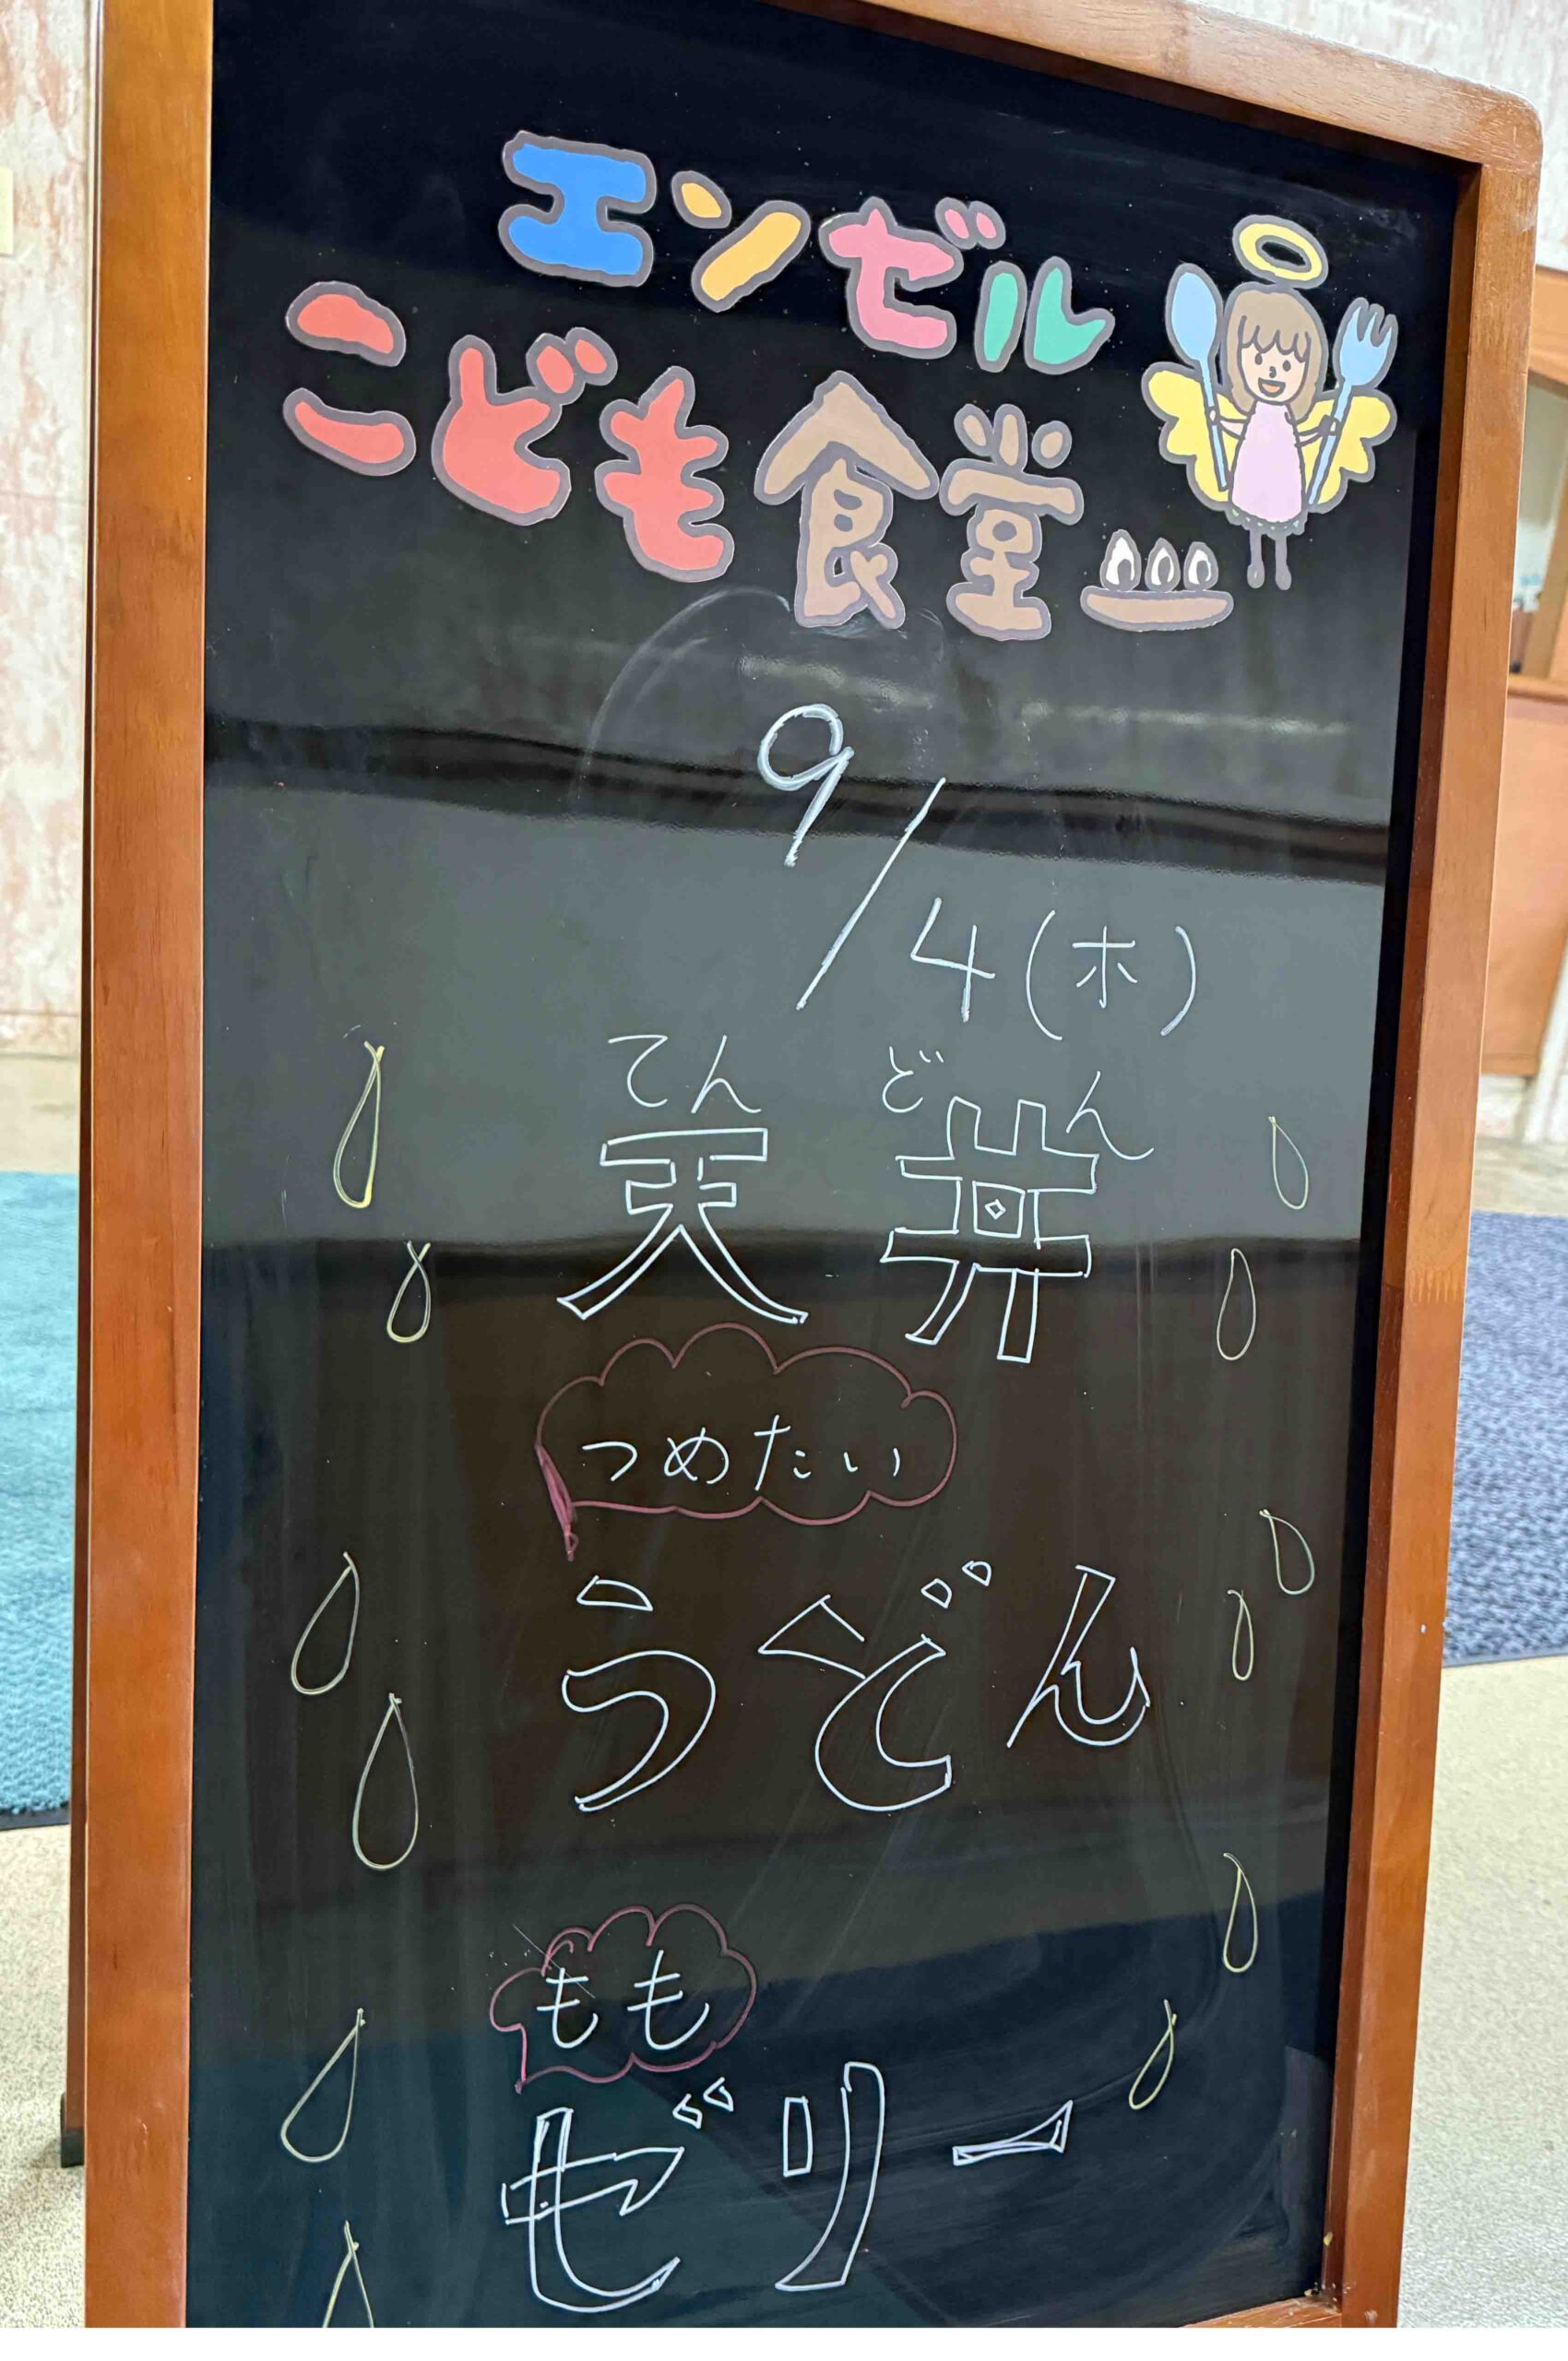 エンゼル
こども食堂
9/4(木)
てん どん
天丼
つめたい
うどん
もも
ゼリー